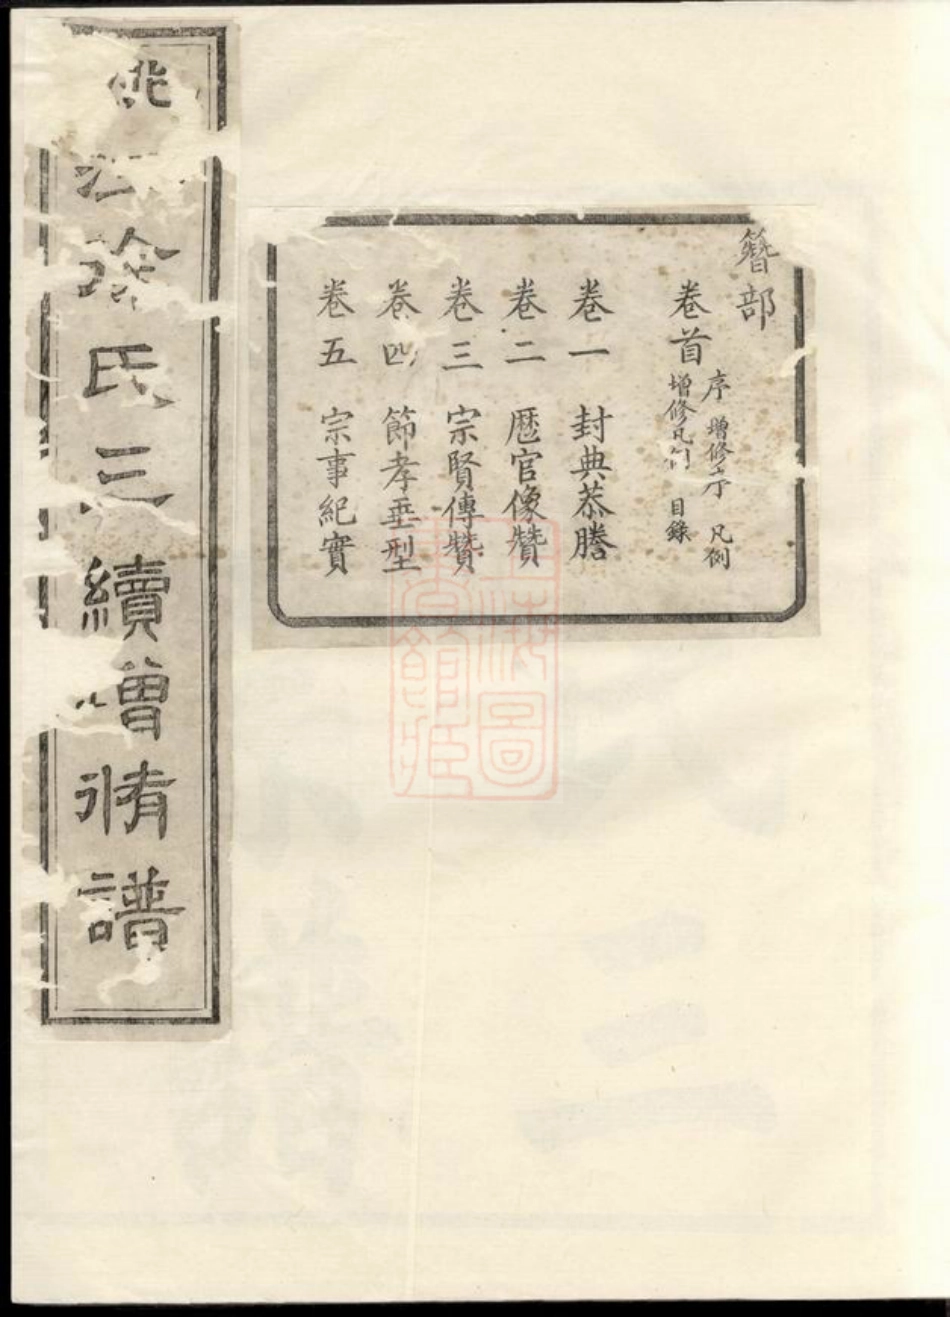 簪部
卷首
序 增修序 凡例
增修凡例 目錄
卷一 封典恭謄
卷二 歷官像贊
卷三 宗賢傳贊
卷四 節孝垂型
卷五 宗事紀實
姚江徐氏三續增修譜
上海圖
書館藏